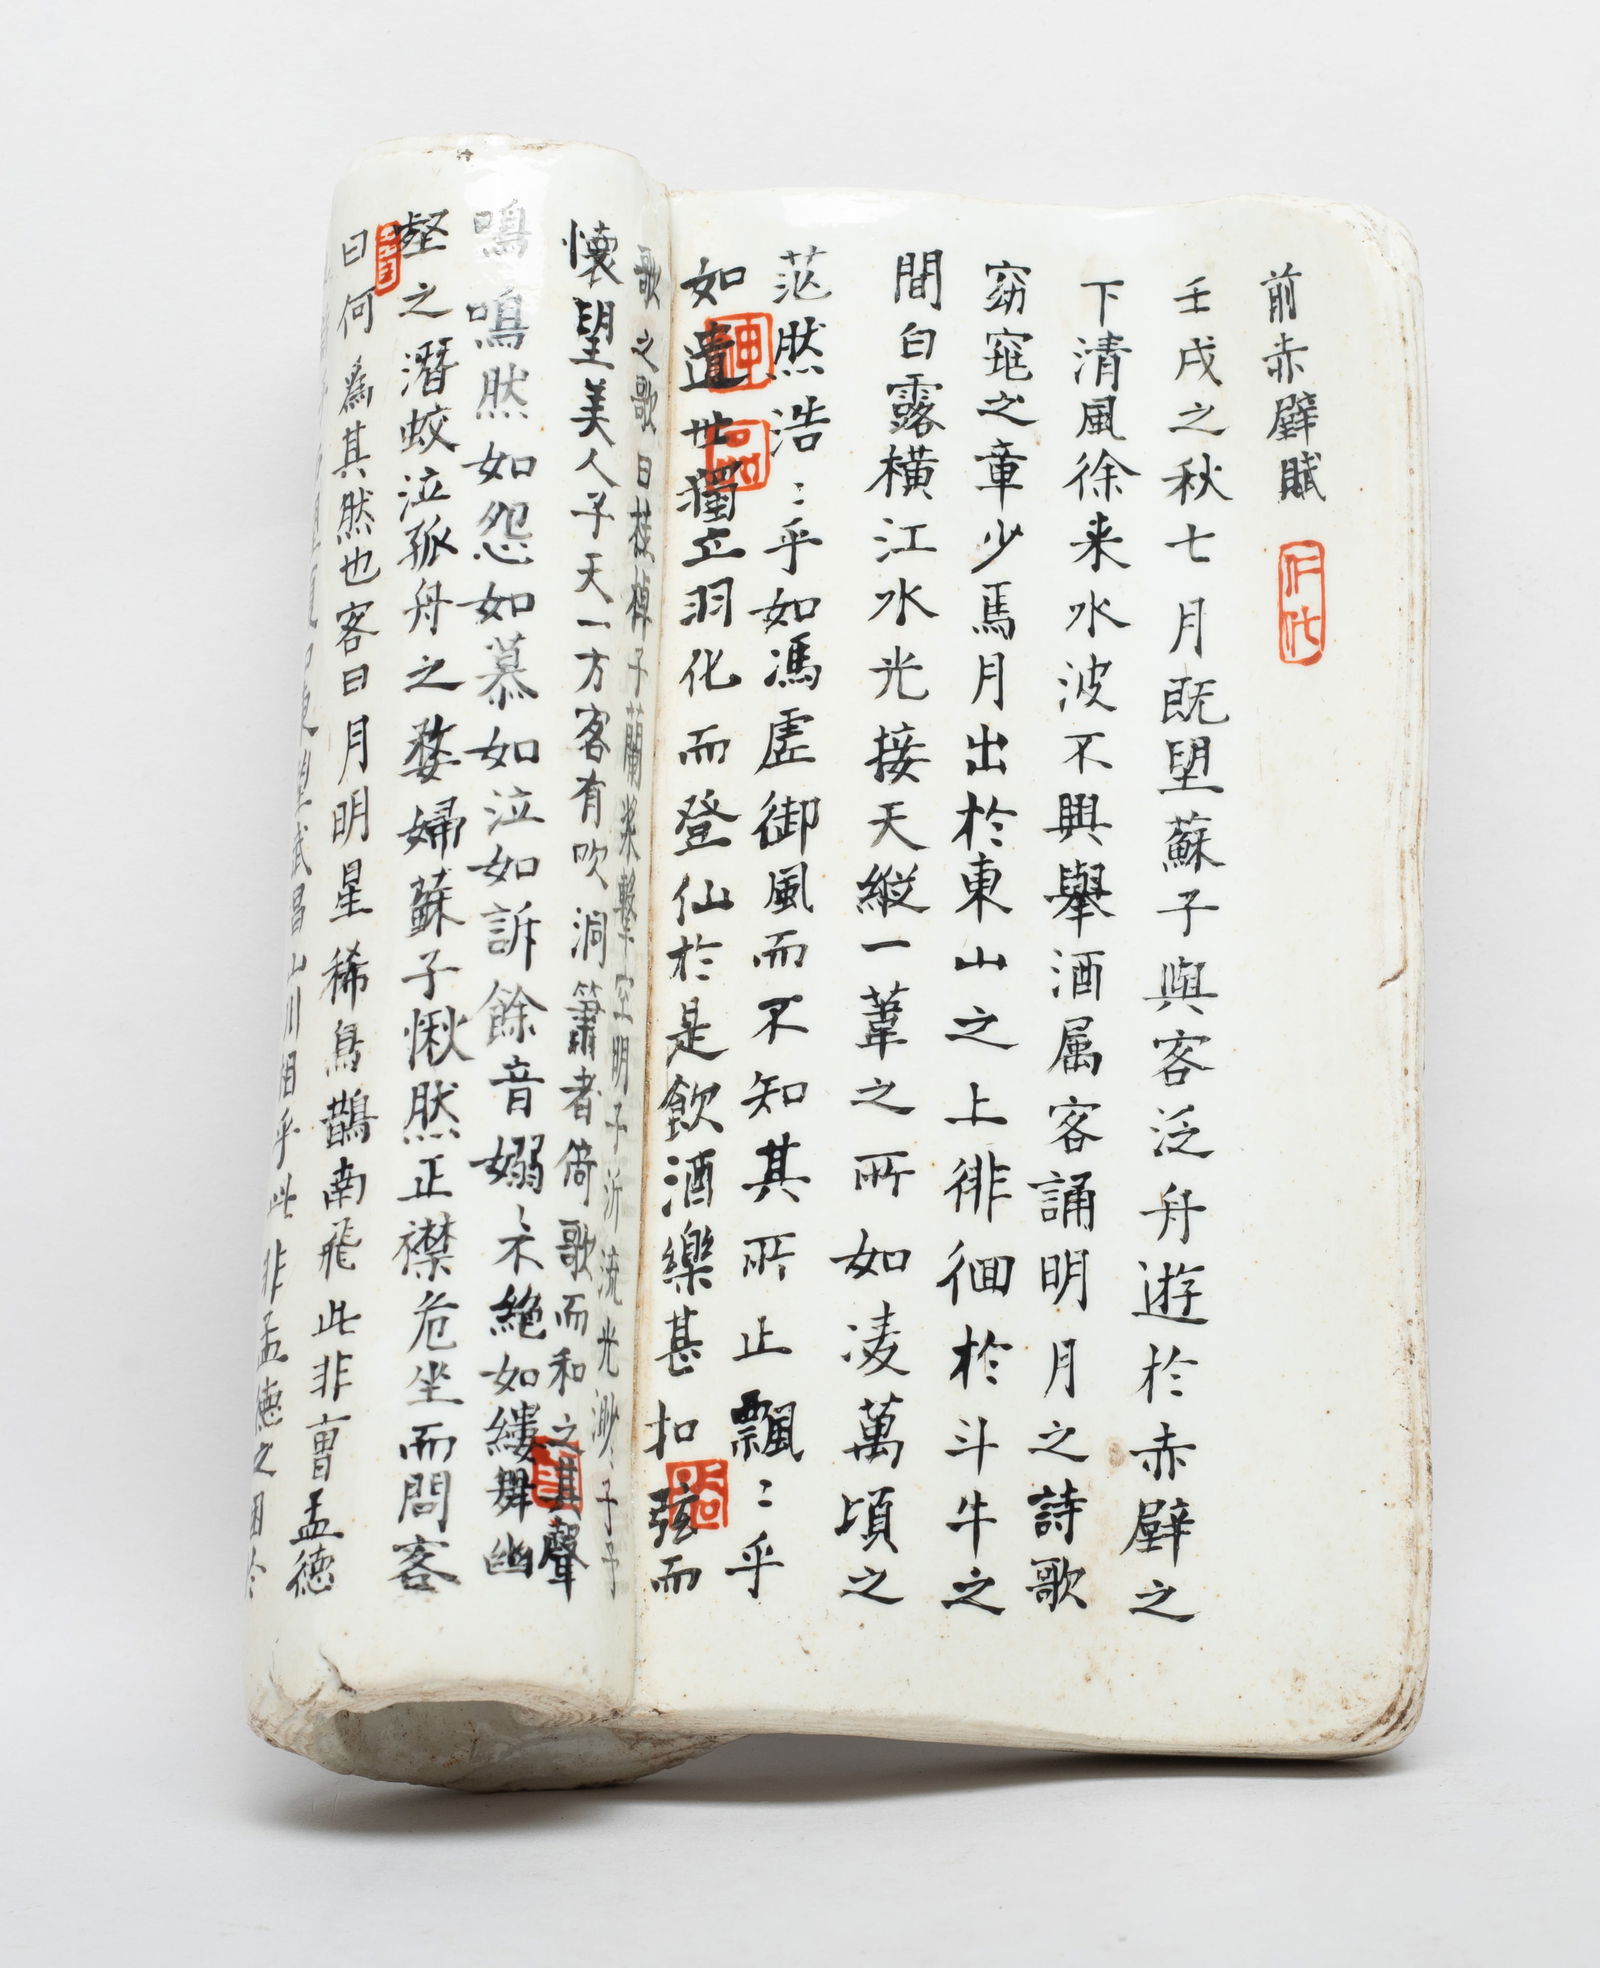 前赤壁賦
壬戌之秋七月既望蘇子與客泛舟遊於赤壁之
下清風徐来水波不興舉酒属客誦明月之詩歌
窈窕之章少焉月出於東山之上徘徊於斗牛之
間白露橫江水光接天縱一葦之所如凌萬頃之
茫然浩〻乎如馮虛御風而不知其所止飄〻乎
如遺世獨立羽化而登仙於是飲酒樂甚扣弦而
歌之歌曰桂棹子蘭槳擊空明子泝流光渺〻子子
懷望美人子天一方客有吹洞簫者倚歌而和之其聲
鳴鳴然如怨如慕如泣如訴餘音嫋〻不絕如縷舞幽
壑之潛蛟泣孤舟之婺婦蘇子愀然正襟危坐而問客
曰何為其然也客曰月明星稀烏鵲南飛此非曹孟德
武昌山川相乎此非孟德之困於